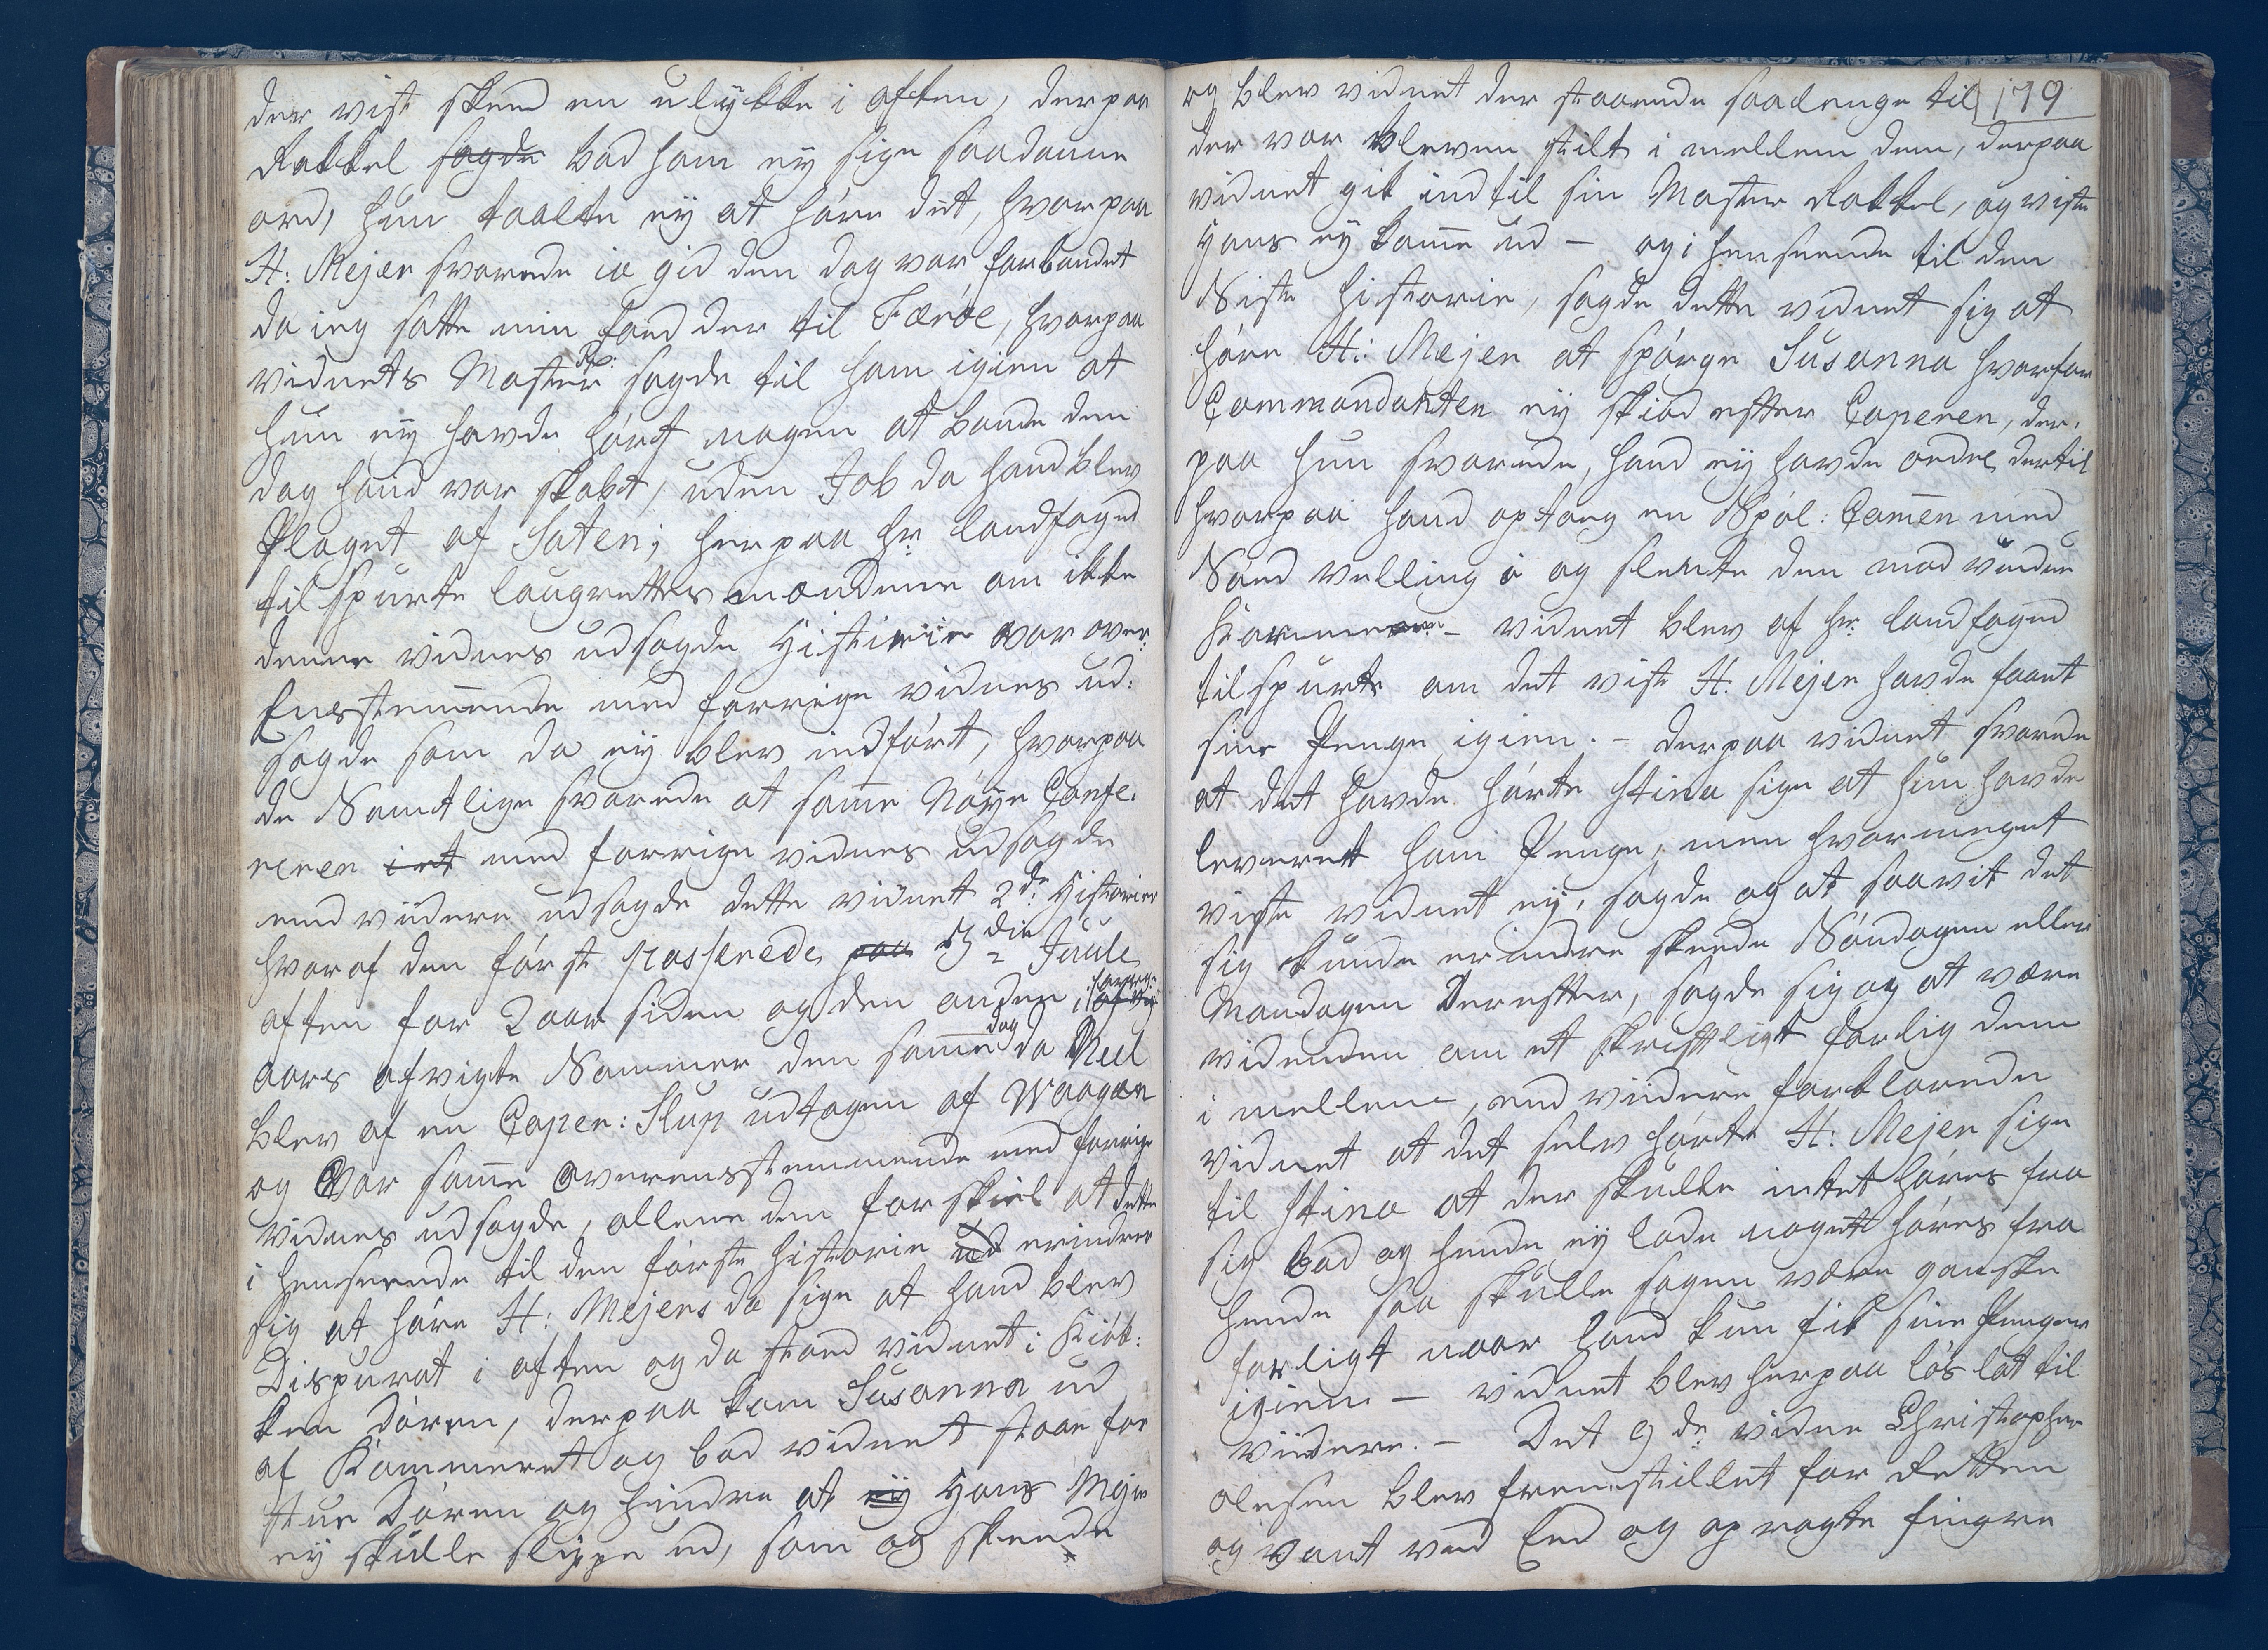 der vist skeed en ulykke i aften, derpaa
Rakkel sagde bad ham ey sige saadanne
ord, hun taalte ey at høre det, hvorpaa
H: Mejer svarede ia gid den dag var forbandet
da ieg satte min Foed der til Færøe, hvorpaa
vidnets Moster Ra: sagde til ham igien at
hun ey havde hørt nogen at bande den
dag hand var skabt, uden Job da hand blev
Plaget af Saten; herpaa hr: landfoged
tilspurte laugrettesmændene om ikke
denne vidnes udsagde Historie var over¬
Eensstemende med forrige vidnes ud:
sagde som da ey blev indført, hvorpaa
de Samtlige svarede at same Nøye Confe¬
reren iet med forrige vidnes udsagde
end viidere udsagde dette vidnet 2de Historier
hvoraf den første passerede paa 3die Juule
aften for 2 aar siden og den anden, forrige
aars afvigte Sommer den same dag da Reel
blev af en Caper: Slup udtagen af Waagen
og Var same Overensstemmende med forrige
vidnes udsagde, allene den forskiel at dette
i henseende til den første historie ud erindrer
sig at høre H: Mejers da sige at hand blev
Dispurat i aften og da stoed vidnet i Kiøk:
ken døren, derpaa kom Susanna ud
af Kammeret og bad vidnet staae for
stue Døren og hindre at ey Hans Mejer
ey skulle slippe ud, som og skeede
og blev vidnet der staaende saalenge til 179
der var bleven stilt i mellem dem, derpaa
vidnet gik ind til sin Moster Rakkel, og viste
Hans ey kome ud — og i henseende til den
Siste historie, sagde dette vidnet sig at
høre H: Mejer at spørge Susanna hvorfor
Commandanten ey skiød efter Caperen, der¬
paa hun svarede, hand ey havde ordre dertil
hvorpaa hand optoeg en Spøl: Comen med
Sød velling i og slengte den mod vindue
Karmene — vidnet blev af hr: landfoged
tilspurte om det viste H. Mejer havde faaet
sine Penge igien. — derpaa vidnet svarede
at det havde hørte Stina sige at hun havde
leveret ham Penge, men hvormeget
viste vidnet ey, sagde og at saavit det
sig kunde erindre skeede Søndagen eller
Mandagen Derefter, sagde sig og at være
videnden om et skriftligt forlig dem
i mellem, end viidere forklarede
vidnet at det selv hørte H: Mejer sige
til Stina at der skulle intet høres fra
sig bad og hende ey lade noget høres fra
hende saa skulle sagen være ganske
forligt naar hand kun fik sine Penger
igien — vidnet blev herpaa løs lat til
viidere. — Det 9de vidne Christopher
olesen blev fremstillet for Retten
og vant ved Eed og opragte fingre